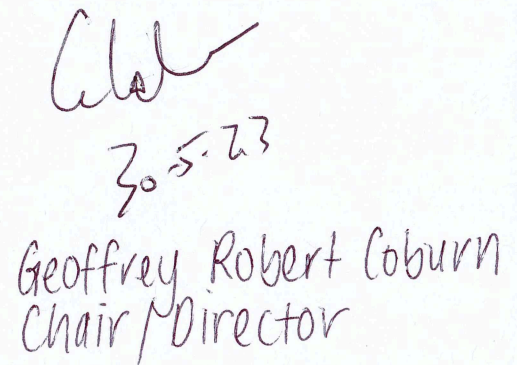 30.5.23
Geoffrey Robert Coburn
Chair/Director